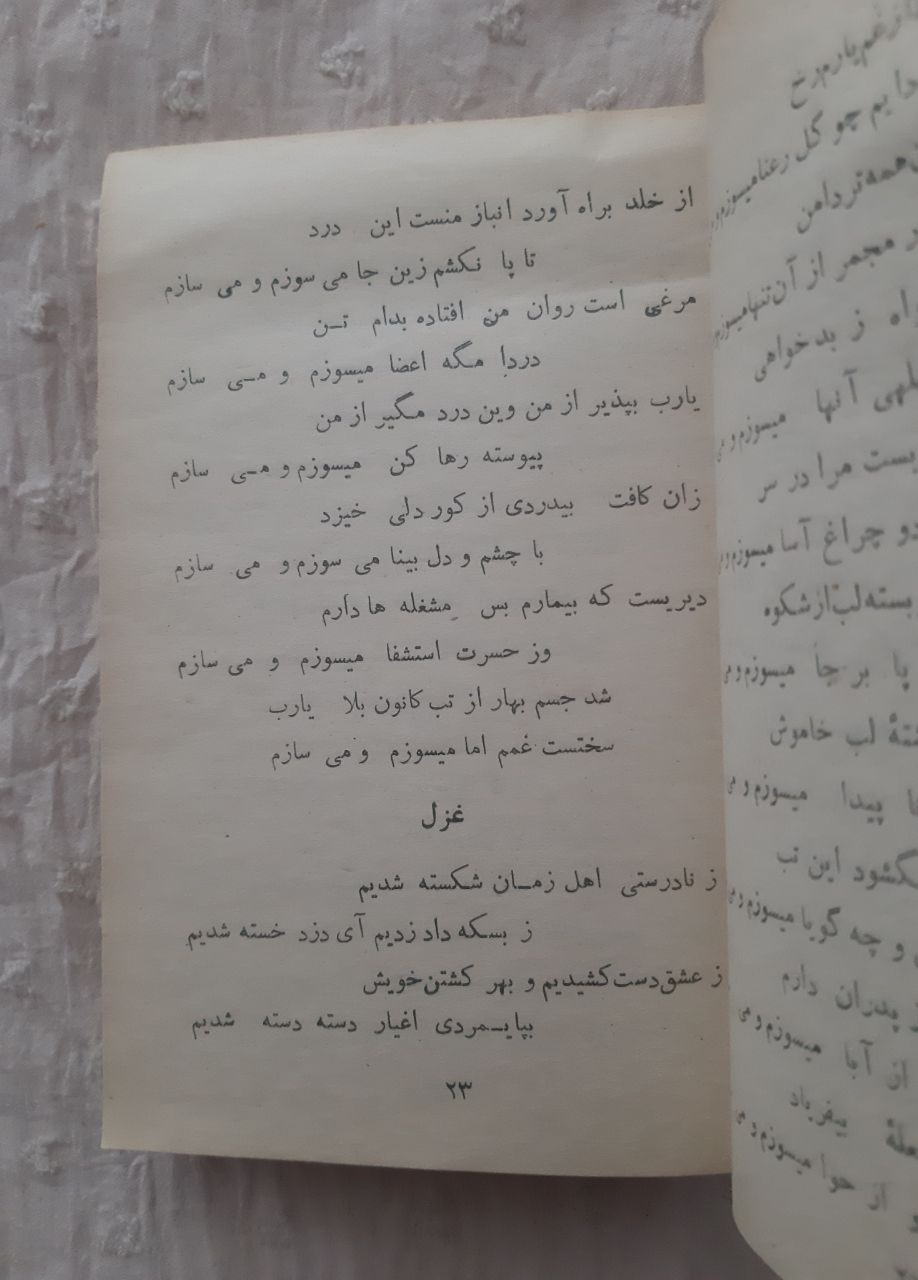 از خلد براه آورد انباز منست این درد
تا پا نکشم زین جا می سوزم و می سازم
مرغی است روان من افتاده بدام تـن
دردا مگه اعضا میسوزم و مـی سازم
یارب بپذیر از من وین درد مگیر از من
پیوسته رها کن میسوزم و مـی سازم
زان کافت بیدردی از کور دلی خیزد
با چشم و دل بینا می سوزم و می سازم
دیریست که بیمارم بس مشغله ها دارم
وز حسرت استشفا میسوزم و می سازم
شد جسم بهار از تب کانون بلا یارب
سختست غمم اما میسوزم و می سازم
غزل
ز نادرستی اهل زمـان شکسته شدیم
ز بسکه داد زدیم آی دزد خسته شدیم
ز عشق دست کشیدیم و بهر کشتن خویش
بپایـمردی اغیار دسته دسته شدیم
۲۳
غم یارم رخ
یم چو گل رعنا میسوزم و
همه تر دامن
مجمر از آن تنها میسوزم
ز بدخواهی
آنها میسوزم و می
مرا در سر
چراغ آسا میسوزم و می
بسته لب از شکوه
پا بر جا میسوزم و می
لب خاموش
پیدا میسوزم و می
این تب
و چه گویا میسوزم و می
پدران دارم
از آبا میسوزم و می
بیفریاد
از حوا میسوزم و می